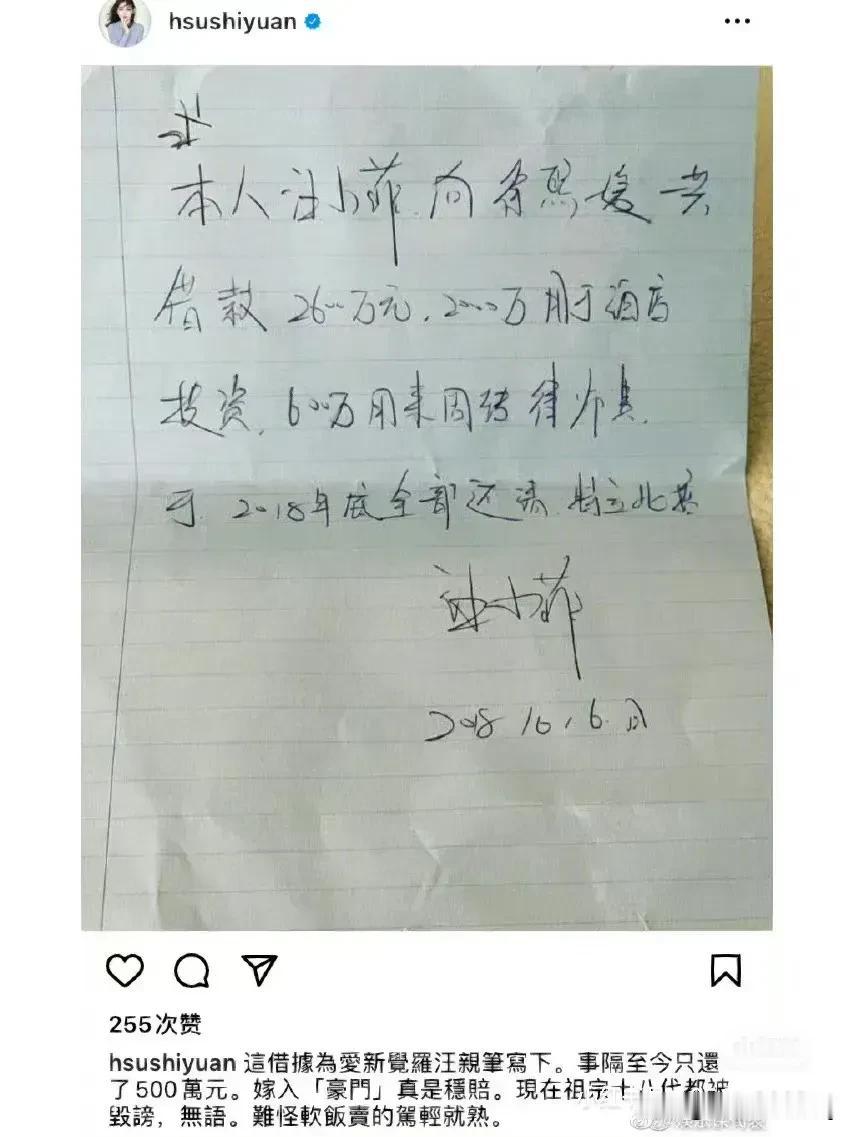 hsushiyuan
本人汪小菲向徐熙媛共
借款2600万元,2000万用于酒店
投资,600万用来周转律师费
于2018年底全部还清,特立此其
汪小菲
2018 10,6.日
255次赞
hsushiyuan 這借據為愛新覺羅汪親筆寫下。事隔至今只還
了500萬元。嫁入「豪門」真是穩賠。現在祖宗十八代都被
毀謗,無語。難怪軟飯賣的駕輕就熟。